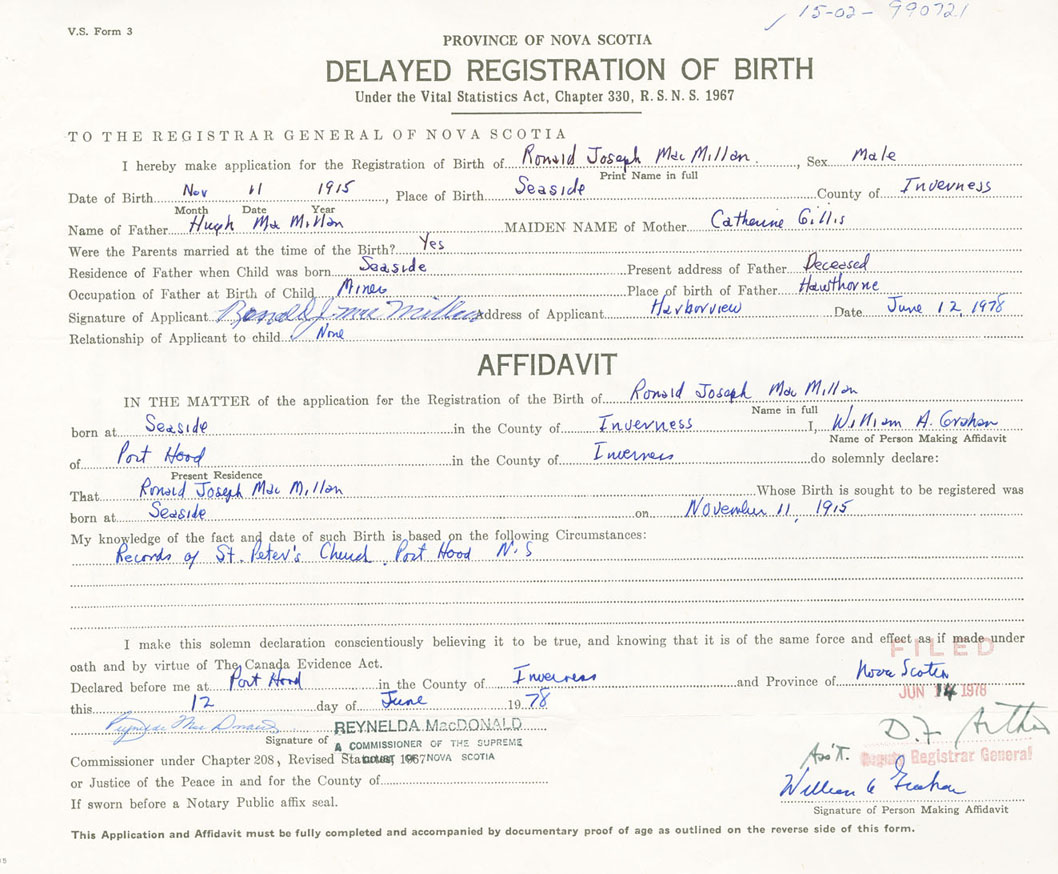 15-02- 990721
V.S. Form 3
PROVINCE OF NOVA SCOTIA
DELAYED REGISTRATION OF BIRTH
Under the Vital Statistics Act, Chapter 330, R.S.N.S. 1967
TO THE REGISTRAR GENERAL OF NOVA SCOTIA
I hereby make application for the Registration of Birth of Ronald Joseph Mac Millan, Sex Male
Print Name in full
Date of Birth Nov 11 1915, Place of Birth Seaside County of Inverness
Month Date Year
Name of Father Hugh Mac Millan MAIDEN NAME of Mother Catherine Gillis
Were the Parents married at the time of the Birth? Yes
Residence of Father when Child was born Seaside Present address of Father Deceased
Occupation of Father at Birth of Child Miner Place of birth of Father Hawthorne
Signature of Applicant Ronald J. Mac Millan Address of Applicant Harborview Date June 12, 1978
Relationship of Applicant to child None
AFFIDAVIT
IN THE MATTER of the application for the Registration of the Birth of Ronald Joseph Mac Millan
Name in full
born at Seaside in the County of Inverness I, William A. Graham
Name of Person Making Affidavit
of Port Hood in the County of Inverness do solemnly declare:
Present Residence
That Ronald Joseph Mac Millan Whose Birth is sought to be registered was
born at Seaside on November 11, 1915
My knowledge of the fact and date of such Birth is based on the following Circumstances:
Records of St. Peter's Church, Port Hood N.S
I make this solemn declaration conscientiously believing it to be true, and knowing that it is of the same force and effect as if made under
FILED
oath and by virtue of The Canada Evidence Act.
Declared before me at Port Hood in the County of Inverness and Province of Nova Scotia
JUN 14 1978
this 12 day of June 1978
REYNELDA MacDONALD
Signature of
A COMMISSIONER OF THE SUPREME
COURT OF NOVA SCOTIA
D.F. Arthur
Ass't. Deputy Registrar General
Commissioner under Chapter 208, Revised Statutes 1967
or Justice of the Peace in and for the County of
William A Graham
If sworn before a Notary Public affix seal.
Signature of Person Making Affidavit
This Application and Affidavit must be fully completed and accompanied by documentary proof of age as outlined on the reverse side of this form.